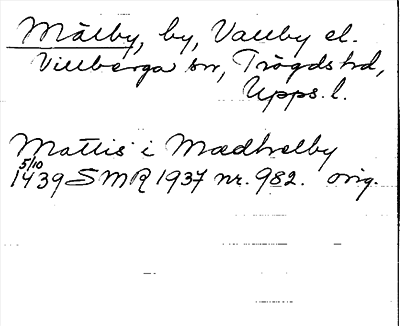 Mälby, by, Vallby el.
Villberga sn, Trögds hd,
Upps. l.
Mattis i Mædhelby
5/10
1439 SMR 1937 nr. 982. orig.